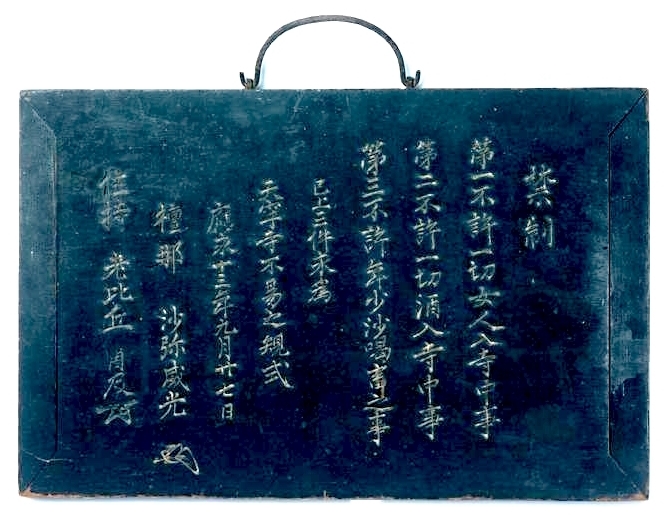 禁制
第一不許一切女人入寺中事
第二不許一切酒入寺中事
第三不許年少沙喝畜之事
已上三件永為
天寧寺不易之規式
應永十三年九月廿七日
檀那 沙弥威光
住持 老比丘